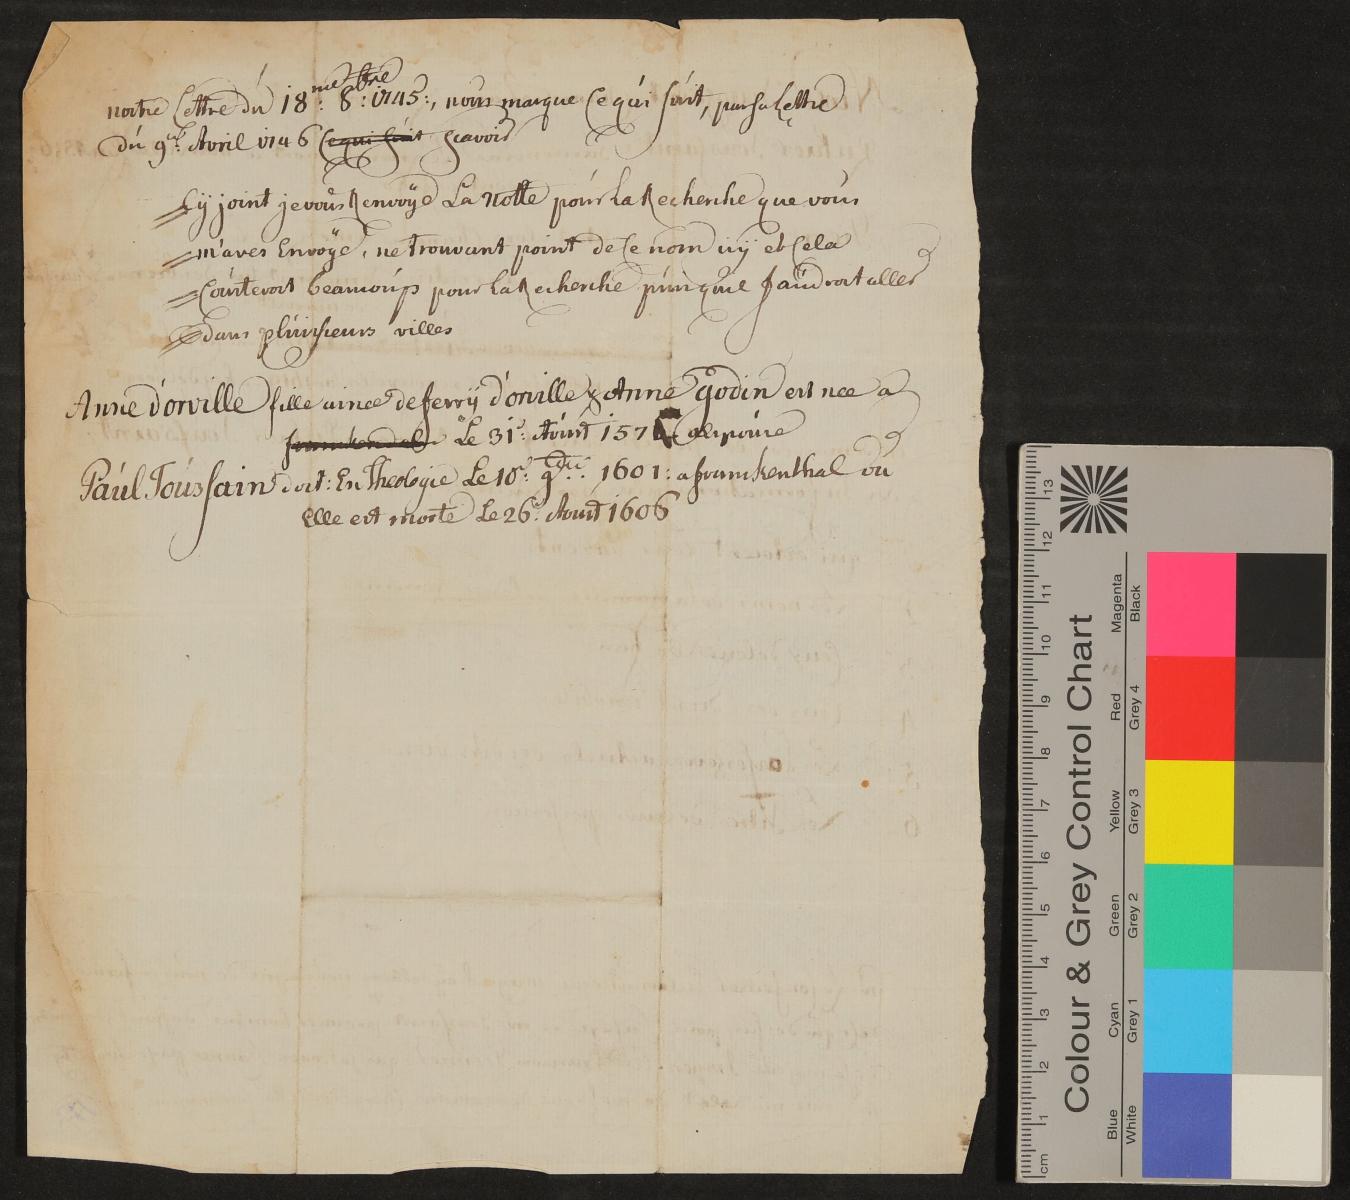 nostre Lettre du 18.me 8.bre 1745:, nous marque Ce qui suit, par sa Lettre
du 9.e Avril 1746 Ce qui suit scavoir
Cy joint je vous Renvoÿe La Notte pour la Recherche que vous
m'aves Envoÿé, ne trouvant point de Ce nom icÿ et Cela
Couteroit beaucoup pour la Recherche puis que faudroit aller
dans plusieurs villes
Anne d'orville fille ainee de ferrÿ d'orville & Anne Godin est nee a
franckendal Le 31.e Aoust 157 a epouse
Paul Toussain doct: En Theologie Le 18.e 9.bre 1601: a franckenthal ou
Elle est morte Le 26.e Aoust 1606
cm 1 2 3 4 5 6 7 8 9 10 11 12 13
Colour & Grey Control Chart
Blue Cyan Green Yellow Red Magenta
White Grey 1 Grey 2 Grey 3 Grey 4 Black